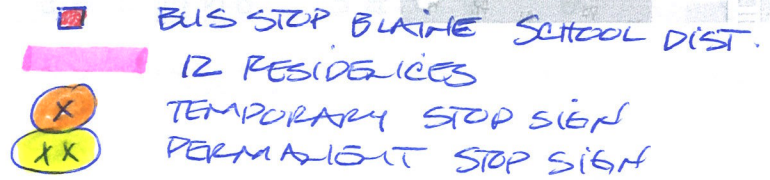 BUS STOP BLAINE SCHOOL DIST.
12 RESIDENCES
X TEMPORARY STOP SIGN
XX PERMANENT STOP SIGN